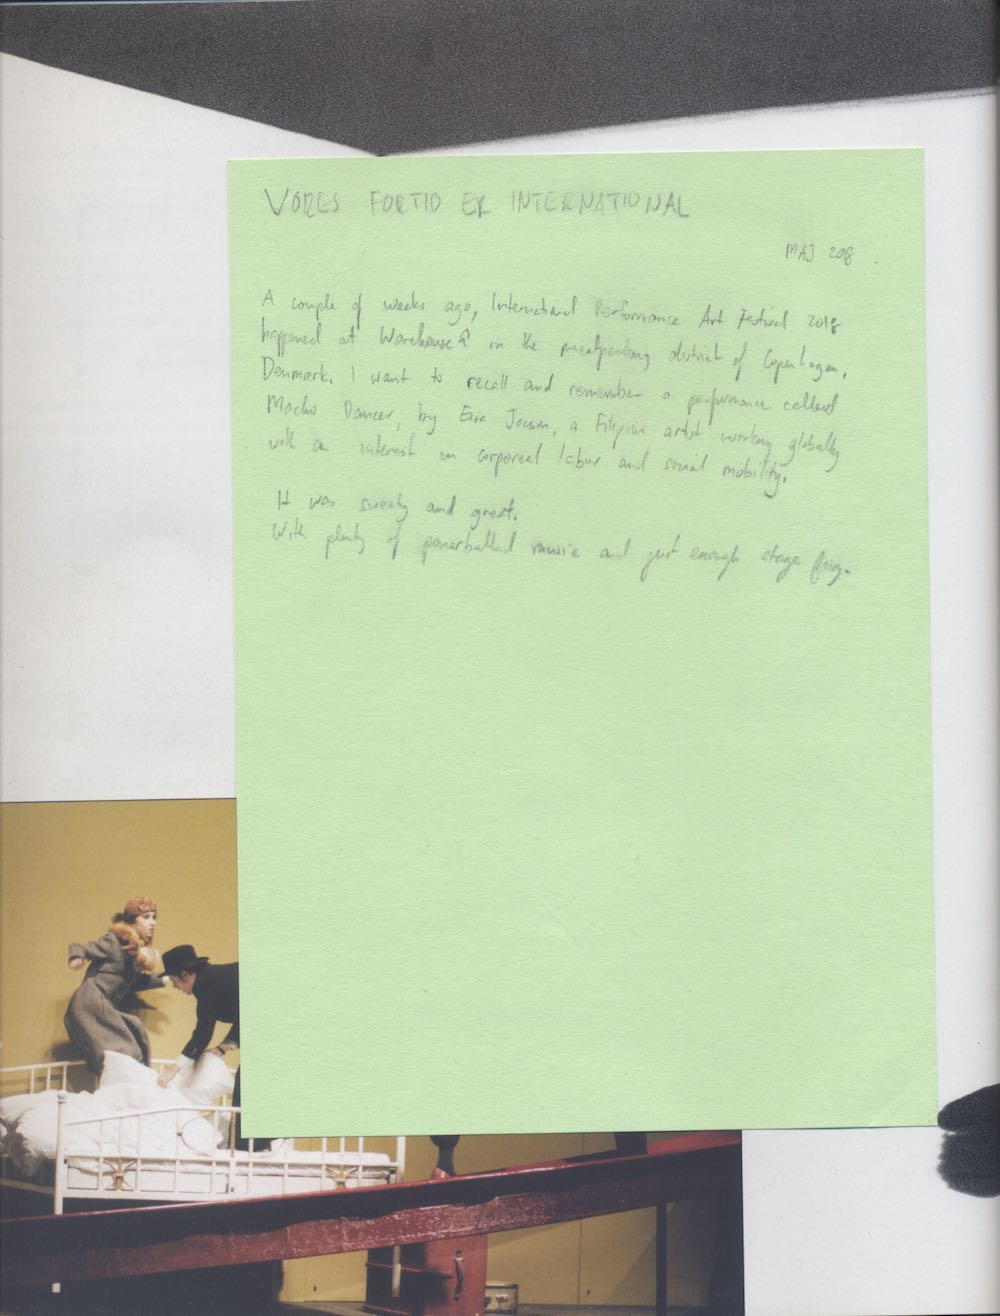 VORES FORTID ER INTERNATIONAL
MAJ 2018
A couple of weeks ago, International Performance Art Festival 2018
happened at Warehouse9 in the meatpacking district of Copenhagen,
Denmark. I want to recall and remember a performance called
Macho Dancer, by Eisa Jocson, a Filipino artist working globally
with an interest in corporeal labour and social mobility.
It was sweaty and great.
With plenty of powerballad music and just enough stage fog.